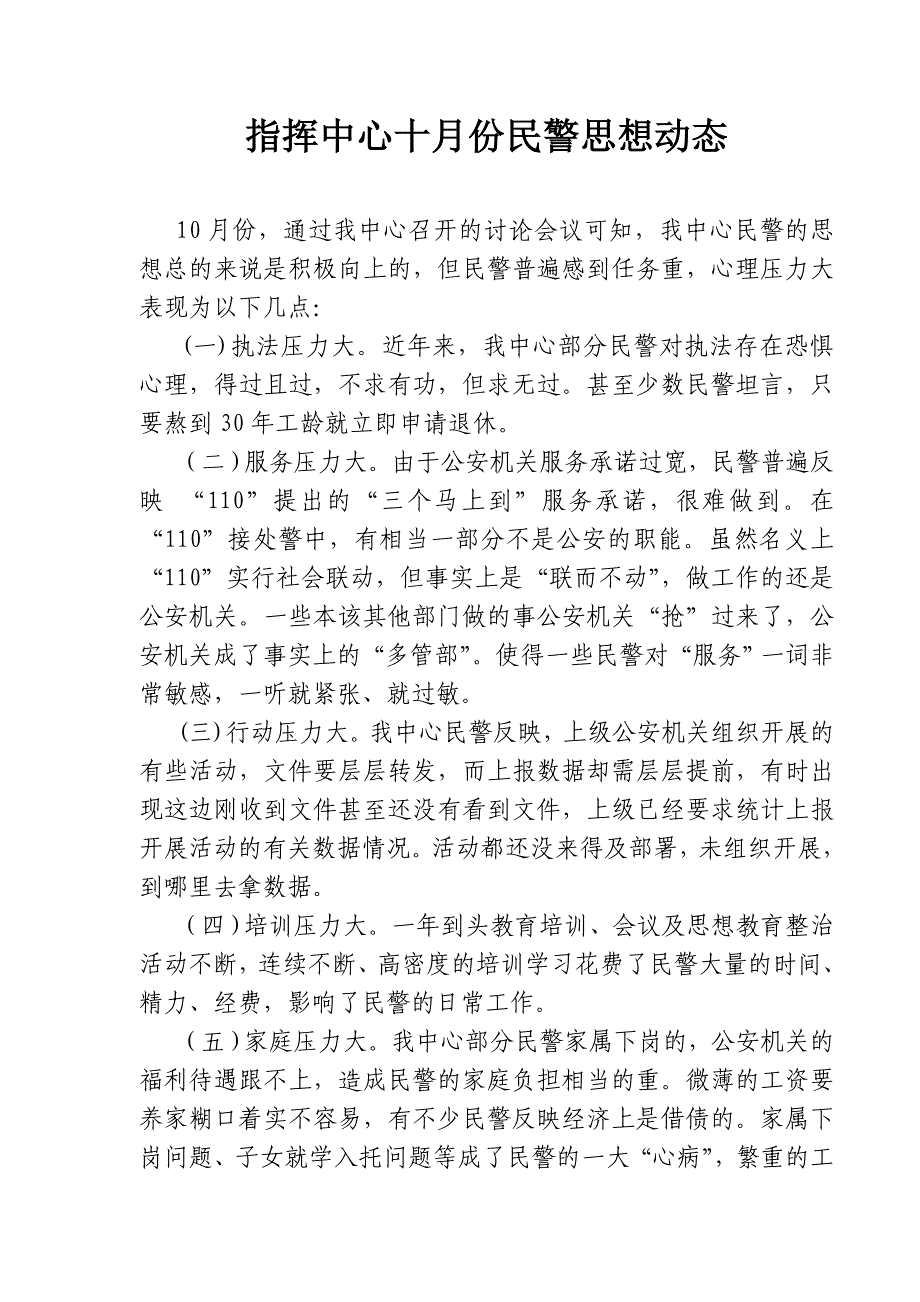 指挥中心十月份民警思想动态
10月份，通过我中心召开的讨论会议可知，我中心民警的思
想总的来说是积极向上的，但民警普遍感到任务重，心理压力大
表现为以下几点：
(一)执法压力大。近年来，我中心部分民警对执法存在恐惧
心理，得过且过，不求有功，但求无过。甚至少数民警坦言，只
要熬到30年工龄就立即申请退休。
(二)服务压力大。由于公安机关服务承诺过宽，民警普遍反
映 “110”提出的“三个马上到”服务承诺，很难做到。在
“110”接处警中，有相当一部分不是公安的职能。虽然名义上
“110”实行社会联动，但事实上是“联而不动”，做工作的还是
公安机关。一些本该其他部门做的事公安机关“抢”过来了，公
安机关成了事实上的“多管部”。使得一些民警对“服务”一词非
常敏感，一听就紧张、就过敏。
(三)行动压力大。我中心民警反映，上级公安机关组织开展的
有些活动，文件要层层转发，而上报数据却需层层提前，有时出
现这边刚收到文件甚至还没有看到文件，上级已经要求统计上报
开展活动的有关数据情况。活动都还没来得及部署，未组织开展，
到哪里去拿数据。
(四)培训压力大。一年到头教育培训、会议及思想教育整治
活动不断，连续不断、高密度的培训学习花费了民警大量的时间、
精力、经费，影响了民警的日常工作。
(五)家庭压力大。我中心部分民警家属下岗的，公安机关的
福利待遇跟不上，造成民警的家庭负担相当的重。微薄的工资要
养家糊口着实不容易，有不少民警反映经济上是借债的。家属下
岗问题、子女就学入托问题等成了民警的一大“心病”，繁重的工